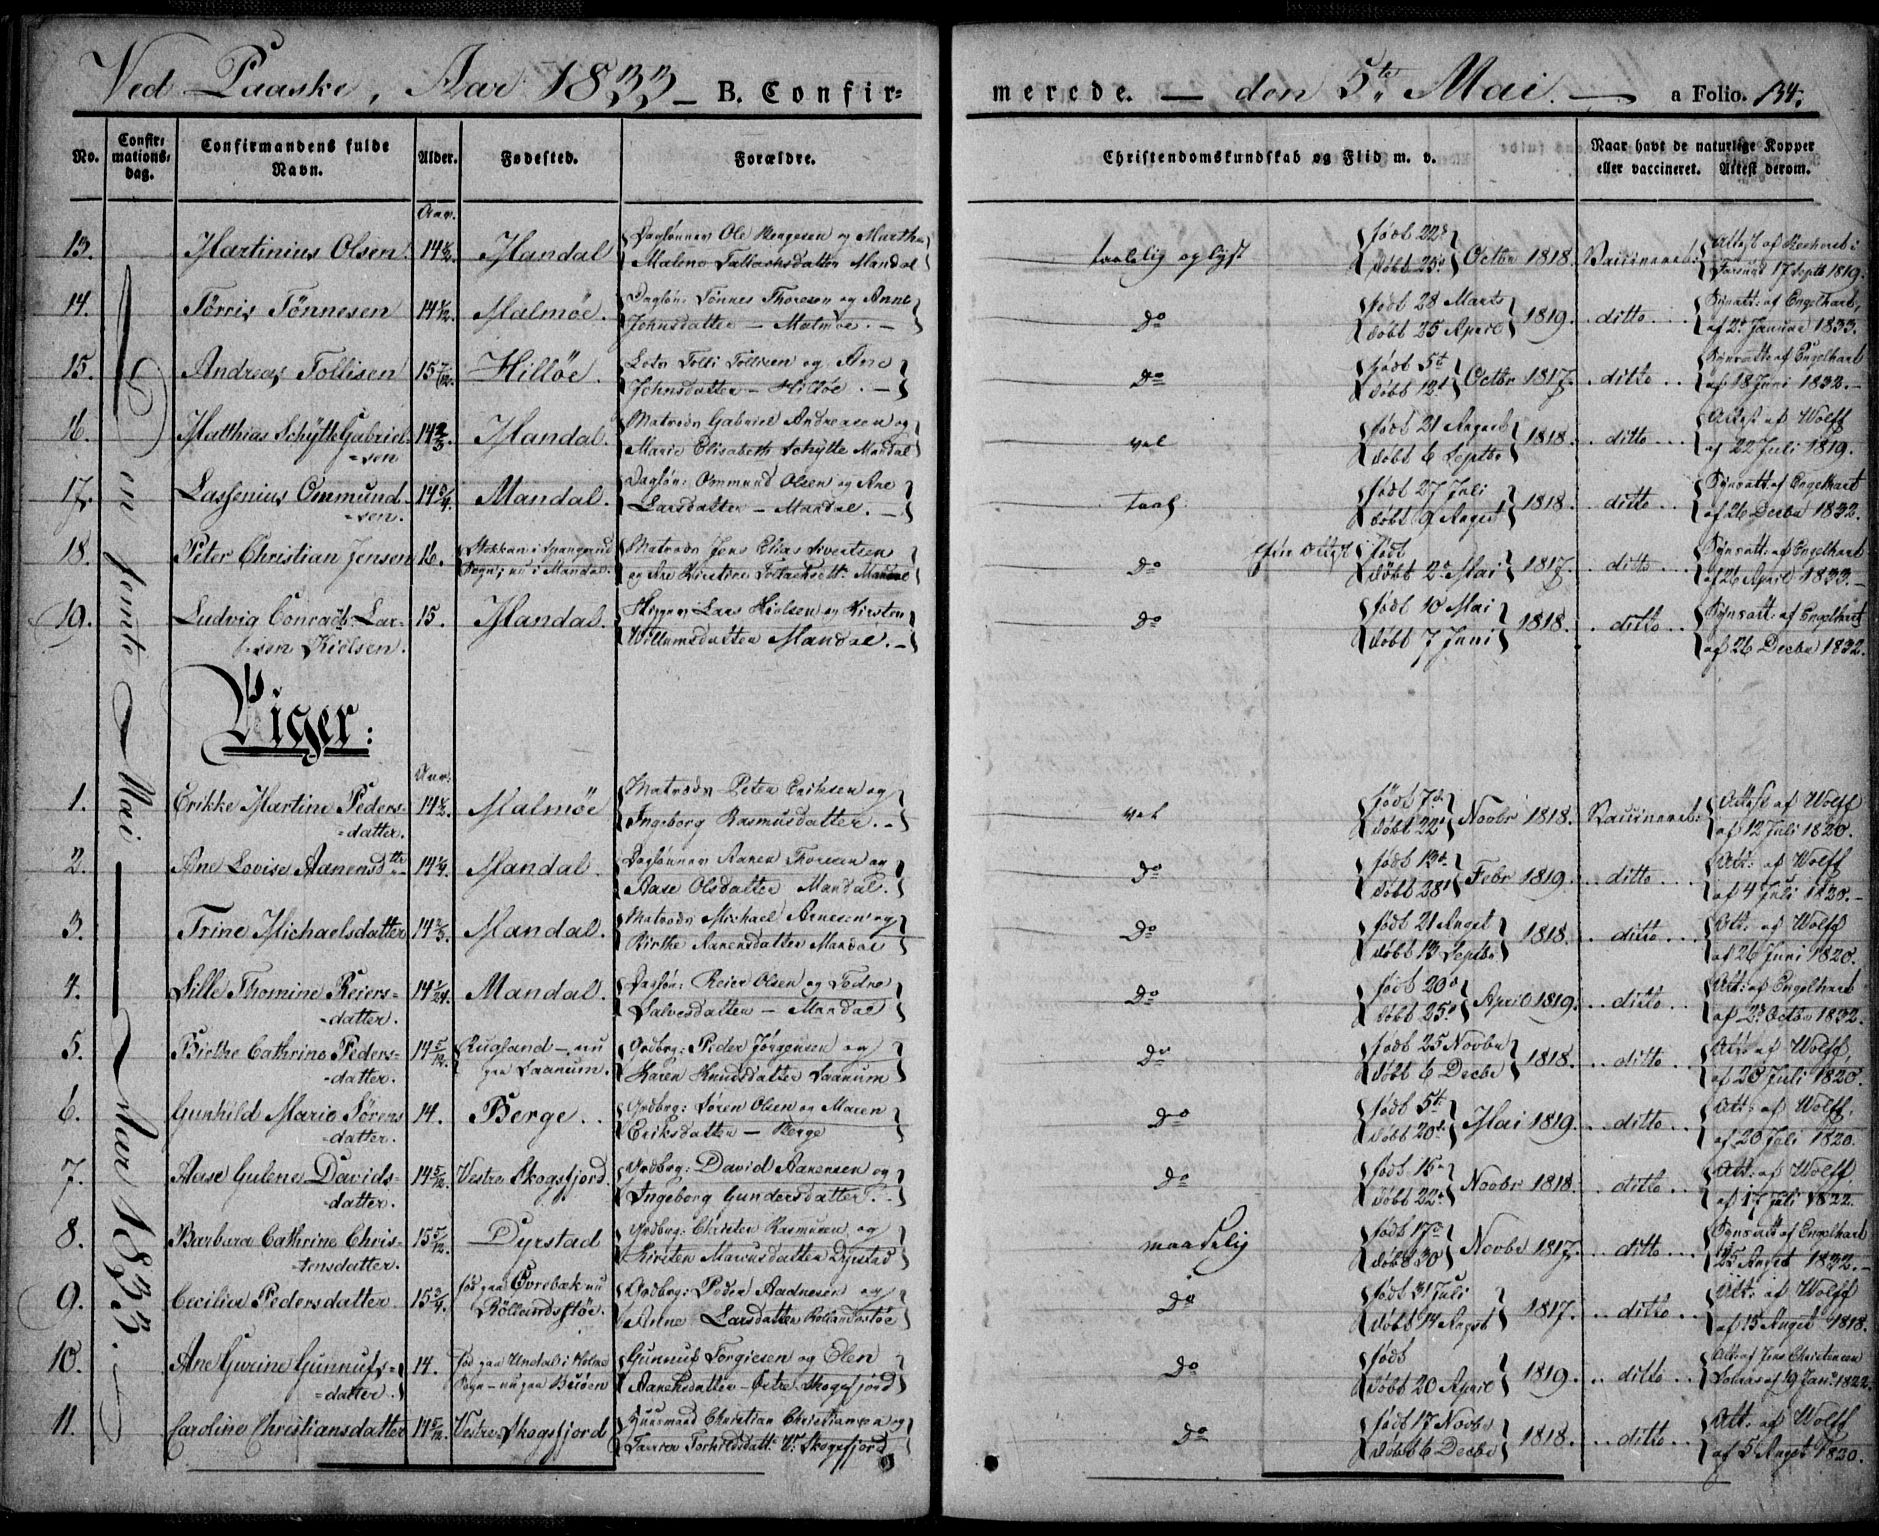 Ved Paaske, Aar 1833 — B. Confir-
merede. — den 5te Mai. — a Folio. 134.
No. Confirmationsdag. Confirmandens fulde Navn. Alder. Fødested. Forældre. Christendomskundskab og Flid m. v. Naar havt de naturlige Kopper eller vaccineret. Attest derom.
Den femte Mai — Aar 1833.
Aar.
13. Martinius Olsen 14 1/2 Mandal Daglønner Ole Bergesen og Marthe
Malene Tallachsdatter Mandal taalelig oplyst født 22d døbt 25d Octbr 1818. Vaccineret:
Farsund 17 Septb 1819.
14. Tørris Tønnesen 14 1/12. Malmøe. Dagløn: Tønnes Thoresen og Anne
Johnsdatter — Malmøe. — Do født 28 Marts døbt 25 April 1819. ditto Synsatt: af Engelhart,
af 2d Januar 1833.
15. Andreas Tollisen 15 7/12. Hilløe. Lots Tolli Tollisen og Ane
Johnsdatter — Hilløe. — Do født 5t døbt 12t Octbr 1817. ditto Synsatt: af Engelhart
af 18 Juni 1832. —
16. Matthias Schytte Gabriel-
=sen 14 2/3. Mandal. Matrods Gabriel Andreasen og
Marie Elisabeth Schytte Mandal vel født 21 August døbt 6 Septbr 1818. ditto Attest af Wolff
af 22 Juli 1819.
17. Lassenius Ommund-
=sen. 14 3/4. Mandal. Dagløn: Ommund Olsen og Ane
Larsdatter — Mandal. — taal. født 27 Juli døbt 9 Augst 1818. ditto Synsatt: af Engelhart
af 26 Decbr 1832.
18. Peter Christian Jensen 16. Sogn; nu i Mandal. Matrods Jens Elias Sivertsen
og Ane Kirstine Mandal Do født døbt 2d Mai 1817. ditto Synsatt: af Engelhart
af 26 April 1833. —
19. Ludvig Conradt Lar-
=sen Nielsen. 15. Mandal. Skipper Lars Nielsen og Kirsten
Willumsdatter Mandal. — Do født 10 Mai døbt 7 Juni 1818. ditto Synsatt: af Engelhart
af 26 Decbr 1832.
Piger:
Aar.
1. Erikke Martine Peders-
=datter. 14 1/2. Malmøe Matrods Peter Eriksen og
Ingeborg Rasmusdatter. — vel født 7de døbt 22d Novbr 1818. Vaccineret: Attest af Wolff
af 12 Juli 1820.
2. Ane Lovise Aanensdtr 14 1/4. Mandal. Dagløner Aanen Thoresen og
Aase Olsdatter Mandal. Do født 13d døbt 28d Febr 1819. ditto Att: af Wolff
af 4 Juli 1820. —
3. Trine Michaelsdatter 14 2/3. Mandal. Matrods Michael Arnesen og
Birthe Aanensdatter Mandal Do født 21 Augst døbt 13 Septbr 1818. ditto Att: af Wolff
af 26 Juni 1820.
4. Sille Thomine Reiers-
=datter. 14 1/24. Mandal. Dagløn: Reier Olsen og
Salvesdatter — Mandal Do født 20d døbt 25d April 1819. ditto Att: af Engelhart
af 2d Octbr 1832.
5. Birthe Cathrine Peders-
=datter. 14 5/12. Rugland — nu
paa Saanum. Grdbrg: Peder Jørgensen og
Karen Knudsdatter Saanum Do født 25 Novbr døbt 6 Decbr 1818. ditto Att: af Wolff,
af 20 Juli 1820.
6. Gunhild Marie Sørens
=datter. 14. Berge. Grdbrg: Søren Olsen og Maren
Eriksdatter — Berge Do født 5te døbt 20d. Mai 1819. ditto Att: af Wolff,
af 20 Juli 1820.
7. Aase Gulene Davids-
=datter. 14 5/12. Vestre Skogsfjord. Grdbrg: David Aanensen og
Ingeborg Gundersdatter. — Do født 15d døbt 22d Novbr 1818. ditto Att: af Wolff,
af 17 Juli 1822.
8. Barbara Cathrine Chris-
=tensdatter. 15 5/12. Dyrstad Grdbrg: Christen Rasmusen og
Kirsten Marcusdatter Dyrstad maadelig født 17d døbt 30 Novbr 1817. ditto Synsatt af Engelhart
25 Augst 1832. —
9. Cecilia Pedersdatter 15 3/4. fød paa Øvrebøk nu
Røllandsstøe. Grdbrg: Peder Aadnesen og
Anne Larsdatter Røllandsstøe Do født 31 Juli døbt 14 Augst 1817. ditto Att: af Wolff
af 15 Augst 1818.
10. Ane Gurine Gunnufs-
=datter. 14. fød paa Undal i Holme
Sogn — nu paa Gunnuf Torgiesen og Elen
Aanensdatter — Østre Skogsfjord Do født døbt 20 April 1819. ditto Att: af Jens Christensen
af 19 Janr 1822.
11. Caroline Christiansdatter 14 5/12. Vestre Skogsfjord Huusmand Christian Christiansen og
Torkildsdatt: V: Skogsfjord Do født 17 Novbr døbt 6 Decbr 1818. ditto Att: af Wolff
af 5 Augst 1820.